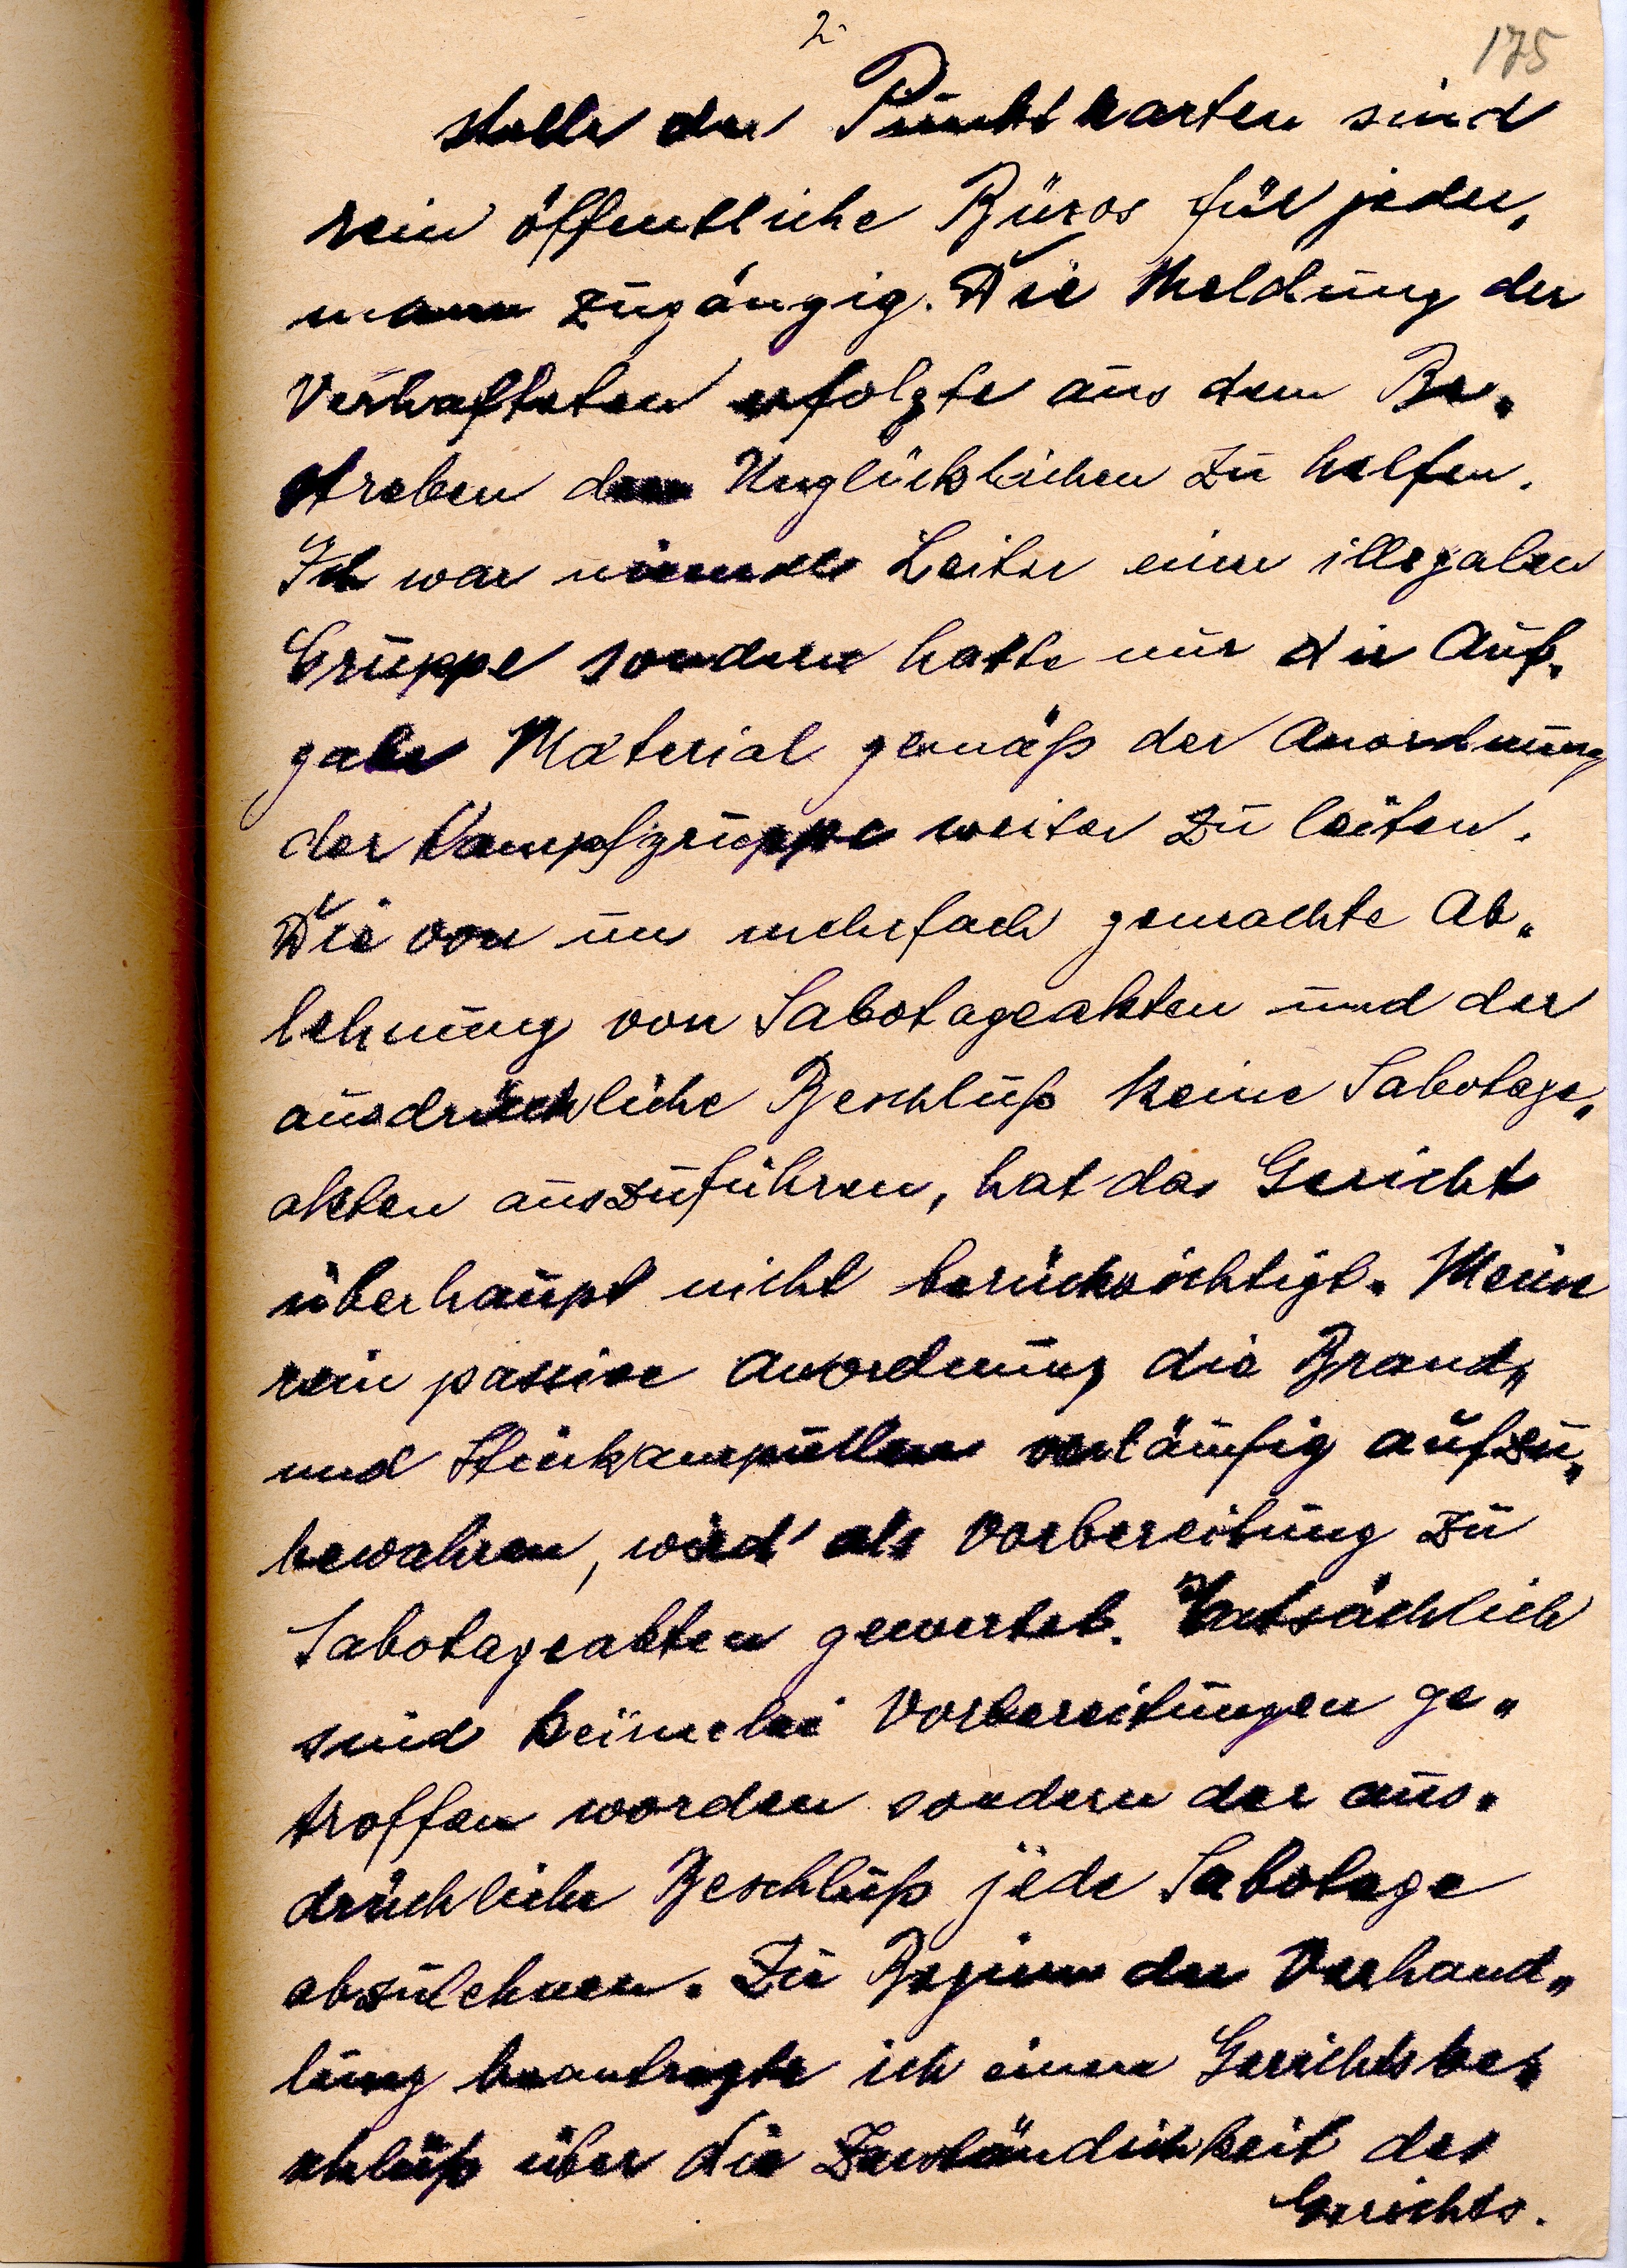 2.
175
stelle der Punktkarten sind
rein öffentliche Büros für jeder„
mann zugängig. Die Meldung der
Verhafteten erfolgte aus dem Be„
streben den Unglücklichen zu helfen.
Ich war niemals Leiter einer illegalen
Gruppe sondern hatte nur die Auf„
gabe Material gemäß der Anordnung
der Kampfgruppe weiter zu leiten.
Die von uns mehrfach gemachte Ab„
lehnung von Sabotageakten und der
ausdrückliche Beschluß keine Sabotage„
akten auszuführen, hat das Gericht
überhaupt nicht berücksichtigt. Meine
rein passive Anordnung die Brand„
und Stinkampullen vorläufig aufzu„
bewahren, wird als Vorbereitung zu
Sabotageakten gewertet. Tatsächlich
sind keinerlei Vorbereitungen ge„
troffen worden sondern der aus„
drückliche Beschluß jede Sabotage
abzulehnen. Zu Beginn der Verhand„
lung beantragte ich einen Gerichtsbe„
schluß über die Zuständichkeit des
Gerichts.